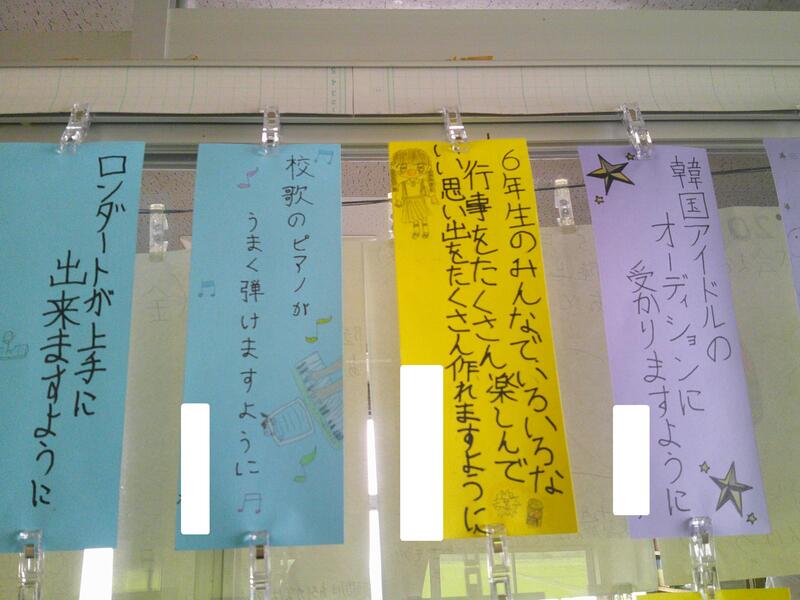 ロンダートが上手に
出来ますように
校歌のピアノが
うまく弾けますように
6年生のみんなでいろいろな
行事をたくさん楽しんで
いい思い出をたくさん作れますように
韓国アイドルの
オーディションに
受かりますように